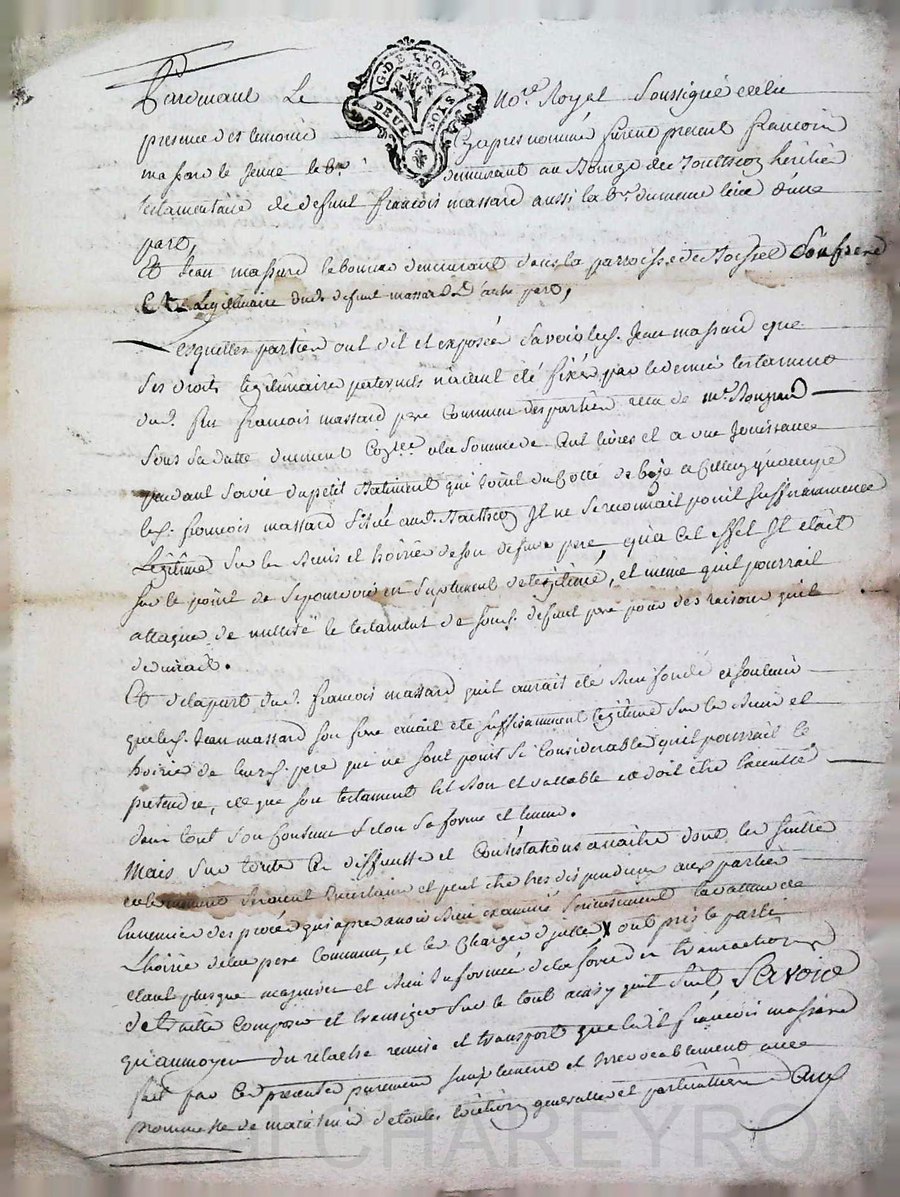 Pardevant Le G. DE LYON DEUX SOLS no.re Royal Soussigné et en la
presence des temoins Cy apres nommé furent present francois
massard le jeune lab.r demeurant au Bourg de heritier
testamentaire de defunt francois massard aussi lab.r du meme lieu d'une
part,
Et Jean massard demeurant dans la parroisse de Son frere
Et Legitimaire dud. defunt massard d'autre part,
Lesquelles partien ont dit et exposée Savoir led. Jean massard que
Ses droits legitimaire paternels n'avent été fixéz par le dernier testament
dud. feu francois massard pere Commun des partien recu de m.e
Sous Sa datte duement a la Somme de Cent livres et a une Jouissance
pendant Sa vie du petit Batiment qui Joint du Cotté de bize a Celluy qu'occupe
led. francois massard Situé aud. Il ne Se croiait point Suffisammence
Légitimé Sur les Biens et hoirie de Son defunt pere, qu'a Cet effet Il était
Sur le point de Se pourvoir en Suplement de legitime, et meme quil pourrait
attaquer de nullité le testament de Sond. defunt pere pour des raisons quil
deduirait.
Et de la part dud. francois massard quil aurait été Bien fondé a Soutenir
que led. Jean massard Son frere avait été Suffisamment legitimé Sur les Biens et
hoirie de leurd. pere qui ne Sont points Si Considerable quil pourrait le
pretendre, et que Son testament est Bon et vallable et doit etre Executté
dans tout Son Contenu Selon Sa forme et teneur.
Mais Sur toutes Ces et Contestations a naitre dont les Suittes
Seraient Incertaine et peut etre tres dispendieux aux partien
Ennemies des procès qui apres avoir Bien examinés Serieusement la valleur de
L'hoirie de leur pere Commun, et les Charges d'ycelle ont pris le parti
etant plus que majeures et Bien Informée de la force des transactions
de traitter Composer et transiger Sur le tout ainsy quil Suit Savoir
qu'au moyen du relache remise et transport que ledit francois massard
fait par Ces presentes purement Simplement et Irrevocablement avec
promesse de maintenir de toutes évictions generalles et particullieres aux
CHAREYRON